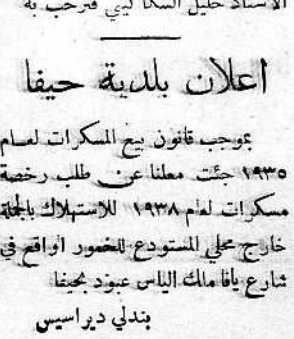 الاستاذ خليل السكاكيني فنرحب به
اعلان بلدية حيفا
بموجب قانون بيع المسكرات لعام
١٩٣٥ جئت معلنا عن طلب رخصة
مسكرات لعام ١٩٣٨ للاستهلاك بالجملة
خارج محلي المستودع للخمور الواقع في
شارع يافا ملك الياس عبود بحيفا
بندلي ديراسيس